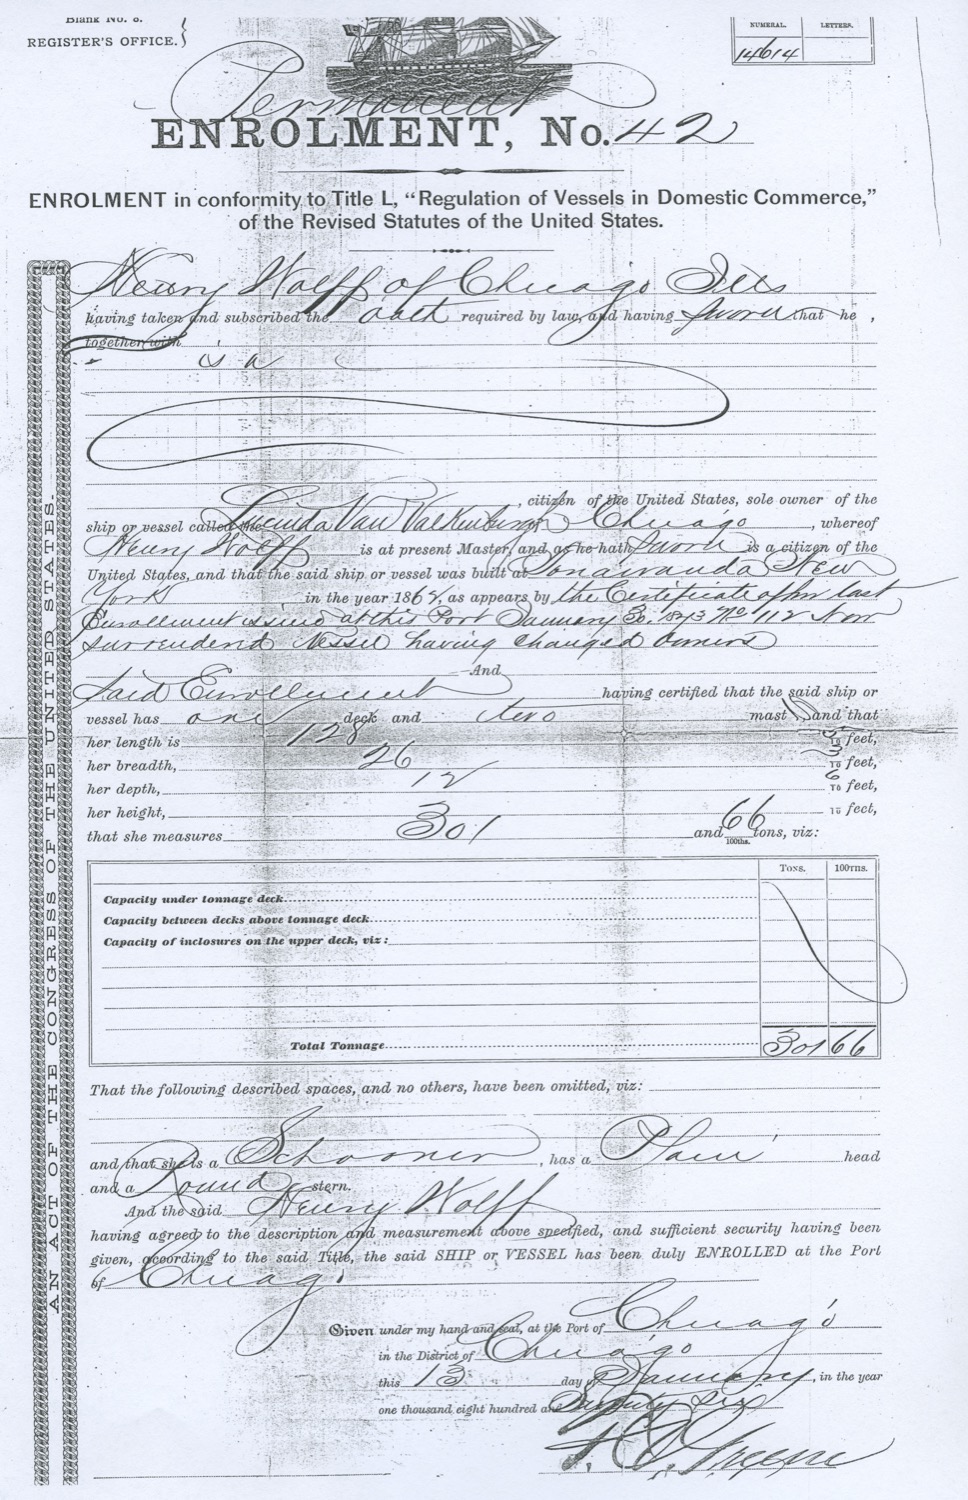 Blank No. 8.
REGISTER'S OFFICE.
NUMERAL. LETTERS.
14614
Permanent
ENROLMENT, No. 42
ENROLMENT in conformity to Title L, “Regulation of Vessels in Domestic Commerce,”
of the Revised Statutes of the United States.
AN ACT OF THE CONGRESS OF THE UNITED STATES.
Henry Wolff of Chicago Ills
having taken and subscribed the oath required by law, and having sworn that he ,
together with
is a
, citizen of the United States, sole owner of the
ship or vessel called the Lucinda Van Valkenburgh Chicago , whereof
Henry Wolff is at present Master, and as he hath sworn is a citizen of the
United States, and that the said ship or vessel was built at Tonawanda New
York in the year 1862, as appears by the Certificate of her last
Enrollment issued at this Port January 30. 1873 No 112 Now
surrendered Vessel having changed Owners
And
Said Enrollment having certified that the said ship or
vessel has one deck and two mast s and that
her length is 128 feet,
her breadth, 26 feet,
her depth, 12 feet,
her height, feet,
that she measures 301 and 66 tons, viz:
100ths.
TONS. 100THS.
Capacity under tonnage deck
Capacity between decks above tonnage deck
Capacity of inclosures on the upper deck, viz:
Total Tonnage 301 66
That the following described spaces, and no others, have been omitted, viz:
and that she is a Schooner , has a Plain head
and a Round stern.
And the said Henry Wolff
having agreed to the description and measurement above specified, and sufficient security having been
given, according to the said Title, the said SHIP or VESSEL has been duly ENROLLED at the Port
of Chicago
Given under my hand and seal, at the Port of Chicago
in the District of Chicago
this 13 day of January, in the year
one thousand eight hundred and Seventy Six